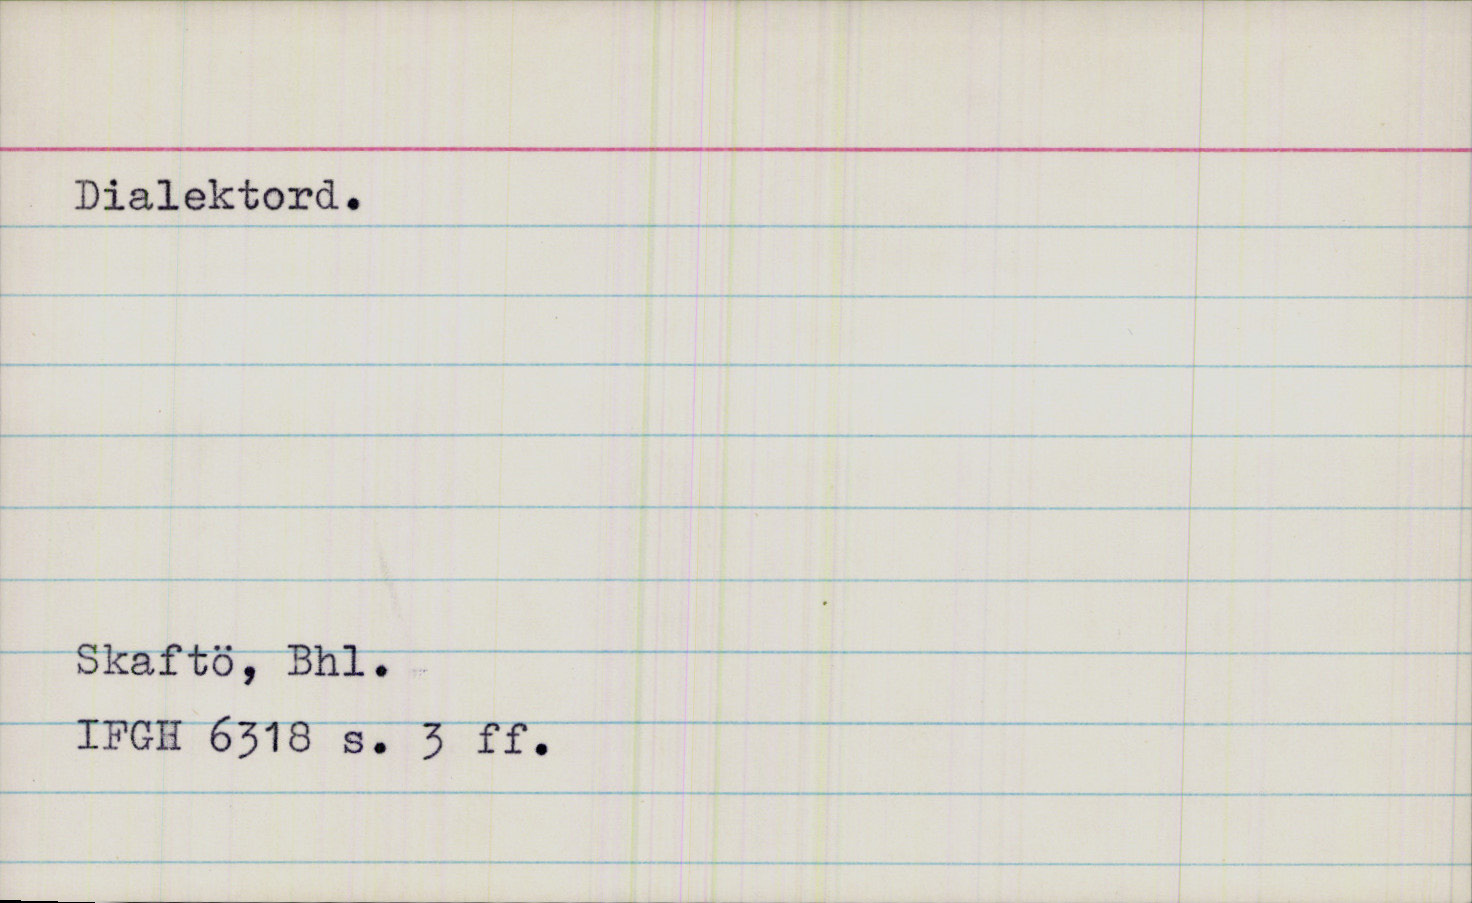 Dialektord.
Skaftö, Bhl.
IFGH 6318 s. 3 ff.